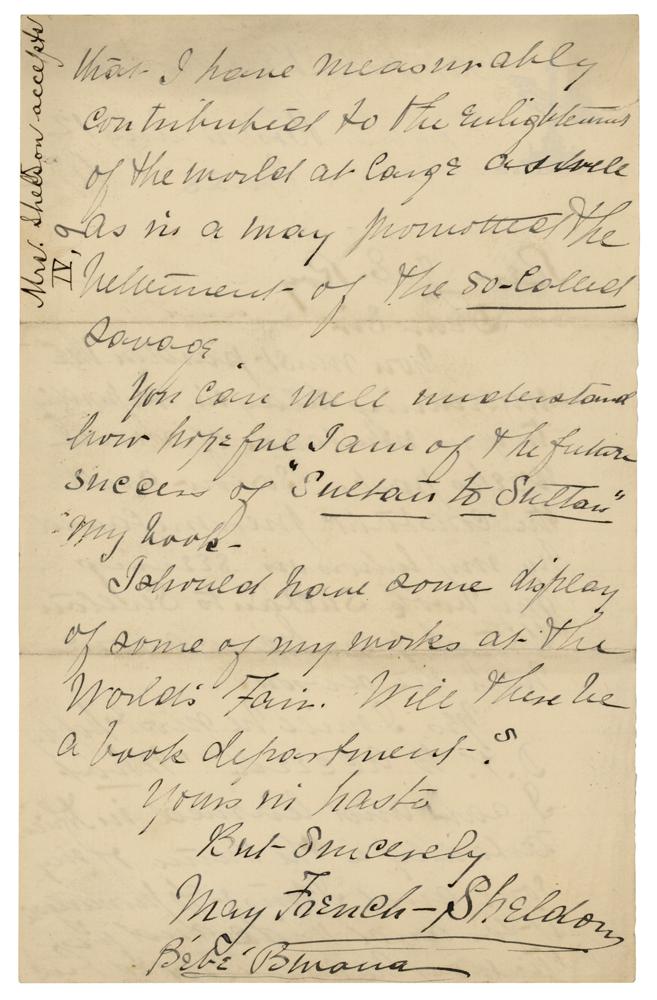 Mrs. Sheldon accepts
IV, 9
that I have measurably
contributed to the enlightenment
of the world at large as well
as in a way promoted the
betterment of the so-called
savage.
You can well understand
how hopeful I am of the future
success of "Sultan to Sultan"
my book-
I should have some display
of some of my works at the
World's Fair. Will there be
a book department-?
Yours in haste
But Sincerely
May French-Sheldon
Bébé Bwana